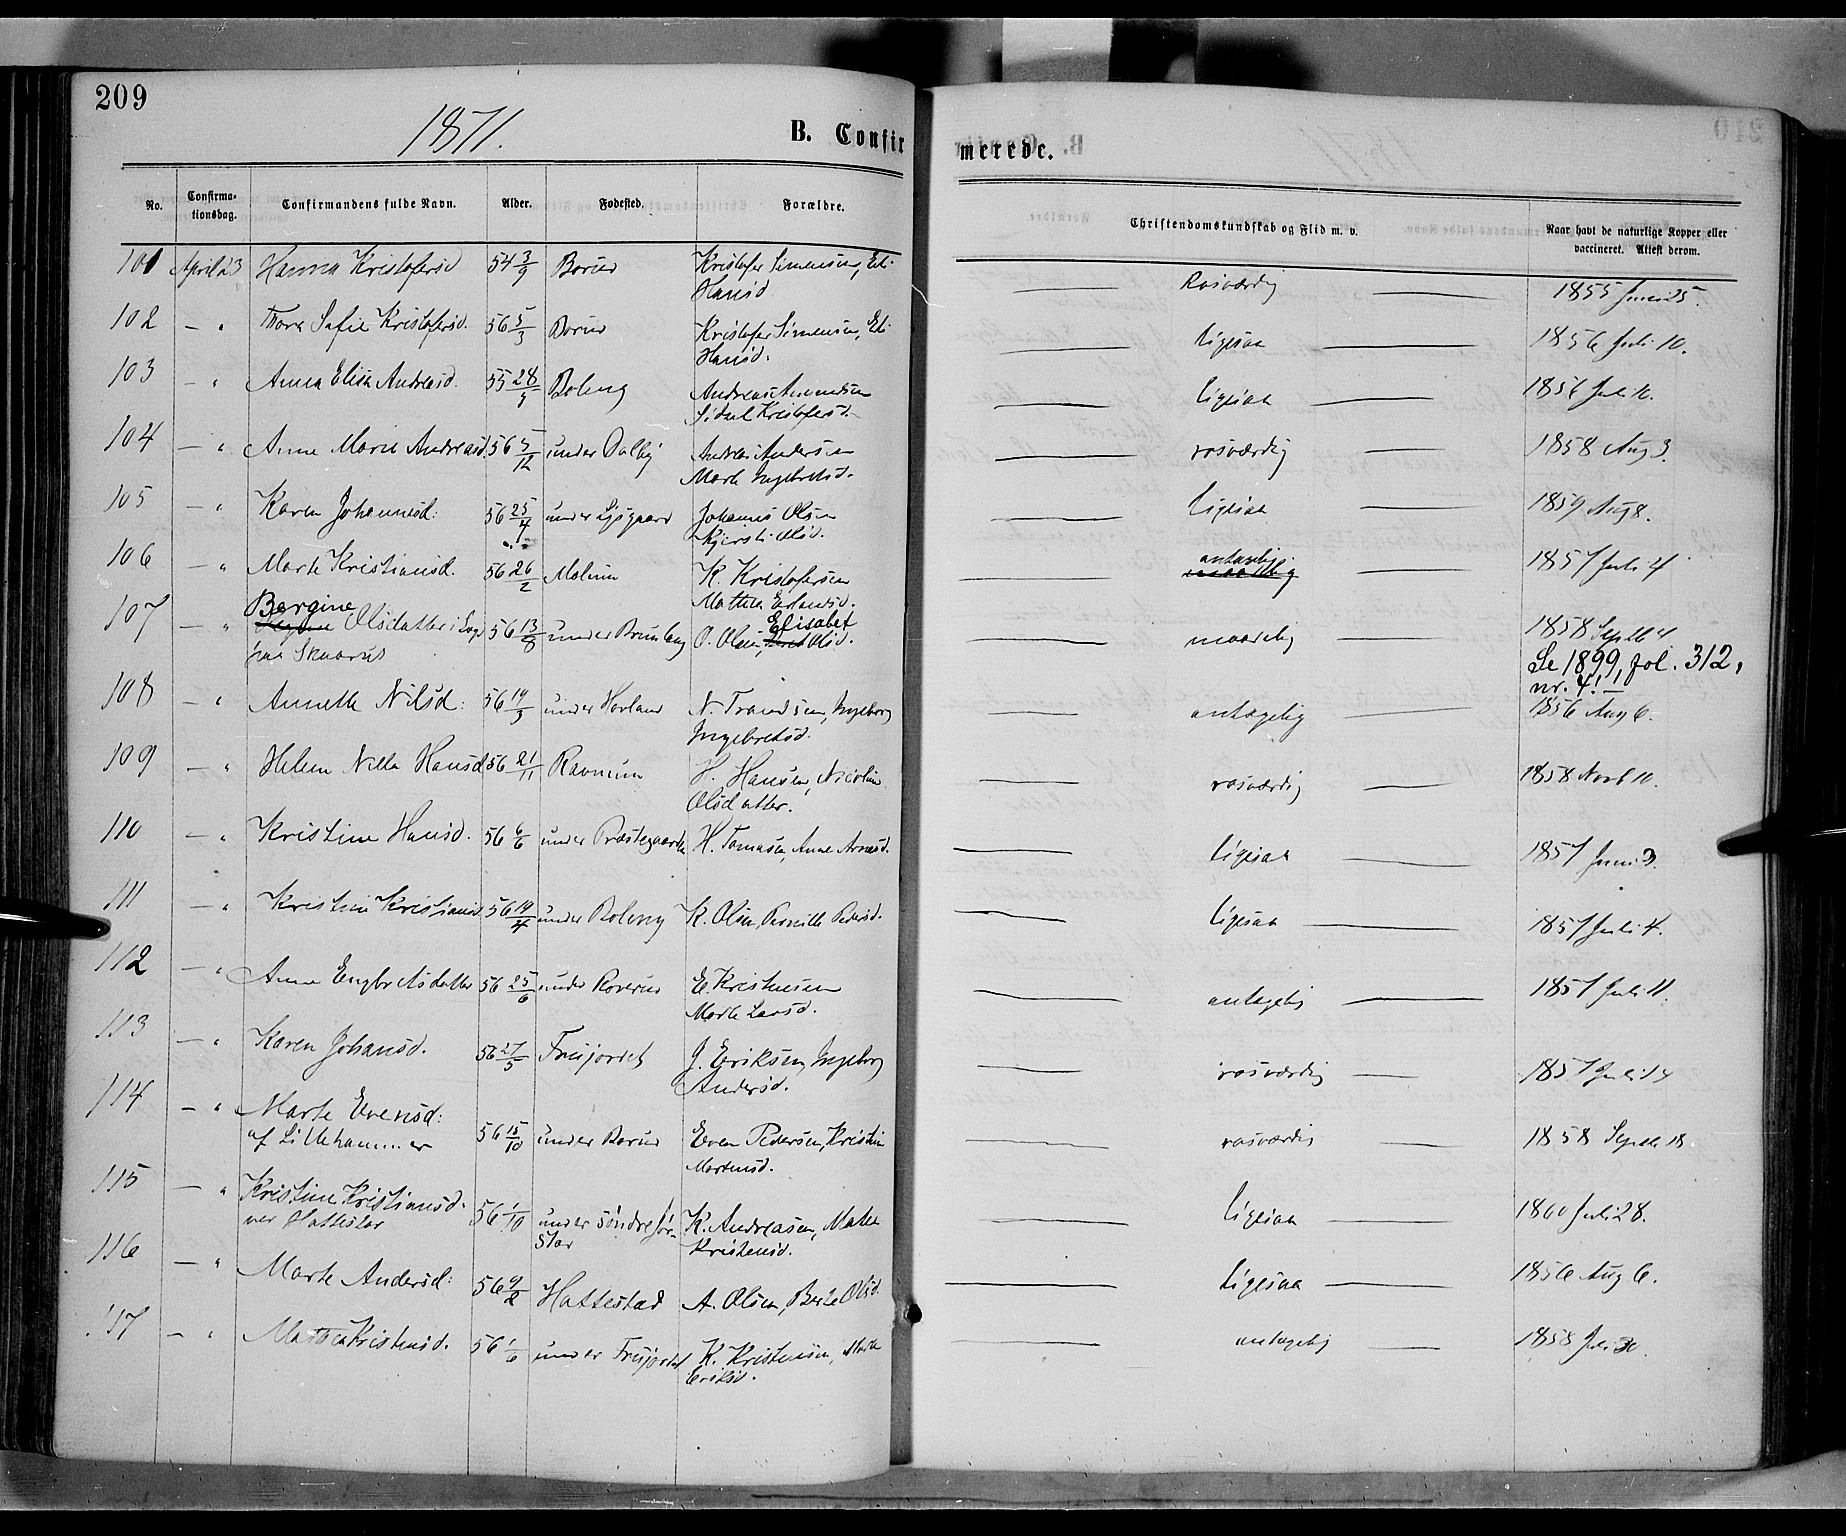 209
1871.
B. Confir
merede.
210
No.
Confirma-
tionsdag.
Confirmandens fulde Navn.
Alder.
Fødested.
Forældre.
Christendomskundskab og Flid m. v.
Naar havt de naturlige Kopper eller
vaccineret. Attest derom.
101 April 23 Hanna Kristofersd 54 3/9 Borud Kristofer Simensen, Eli
Hansd
Rosværdig 1855 Juni 25.
102 — " Thora Sofie Kristofersd. 56 5/3 Borud Kristofer Simensen, Eli
Hansd.
ligesaa 1856 Juli 10.
103 — " Anna Elisa Andreasd. 55 28/9 Boleng Andreas Amundsen
Sidsel Kristofersd.
ligesaa 1856 Juli 10.
104 — " Anne Marie Andreasd. 56 5/12 under Dalby Andreas Andersen
Marte Ingebretsd.
rosværdig 1858 Aug 3.
105 — " Karen Johannesd. 56 25/4 under Lysgaard Johannes Olsen
Kjersti Olsd.
ligesaa 1859 Aug 8.
106 — " Marte Kristiansd. 56 26/2 Molium K. Kristofersen
Mathea Erlandsd.
antagelig 1857 Juli 4
107 — " Bergine Olsdatter i
paa Skaarud 56 13/8 under Brunleng O. Olsen, Elisabet Olsd.
maadelig 1858 Septb 4
Se 1899, fol. 312,
nr. 4! —
108 — " Annette Nilsd: 56 19/3 under Hovland N. Trondsen, Ingeborg
Ingebretsd.
antagelig 1856 Aug 6.
109 — " Helene Nella Hansd 56 21/11 Ravnum H. Hansen, Nicoline
Olsdatter.
rosværdig 1858 Novb 10.
110 — " Kristine Hansd. 56 6/6 under Præstegaarden H. Tomasen, Anne Arnesd.
ligesaa 1857 Juni 3
111 — " Kristine Kristiansd 56 19/4 under Boleng K. Olsen, Pernille Pedersd.
ligesaa 1857 Juli 4.
112 — " Anne Engbretsdatter 56 25/6 under Roverud E. Kristensen
Marte Larsd.
antagelig 1857 Juli 11.
113 — " Karen Johansd. 56 27/5 Frujordet J. Eriksen, Ingeborg
Andersd.
rosværdig 1857 Juli 14
114 — " Marte Evensd:
af Lillehammer 56 15/10 under Borud Even Pedersen, Kristine
Martensd.
rosværdig 1858 Septb. 18.
115 — " Kristine Kristiansd.
ved Hattestad 56 1/10 under søndre Jør-
stad K. Andreasen, Mathea
Kristensd.
ligesaa 1860 Juli 28.
116 — " Marte Andersd: 56 9/2 Hattestad A. Olsen, Berte Olsd.
ligesaa 1856 Aug 6.
117 — " Mathea Kristensd. 56 1/6 under Frujordet K. Kristensen, Marte
Eriksd.
antagelig 1858 Juli 30.